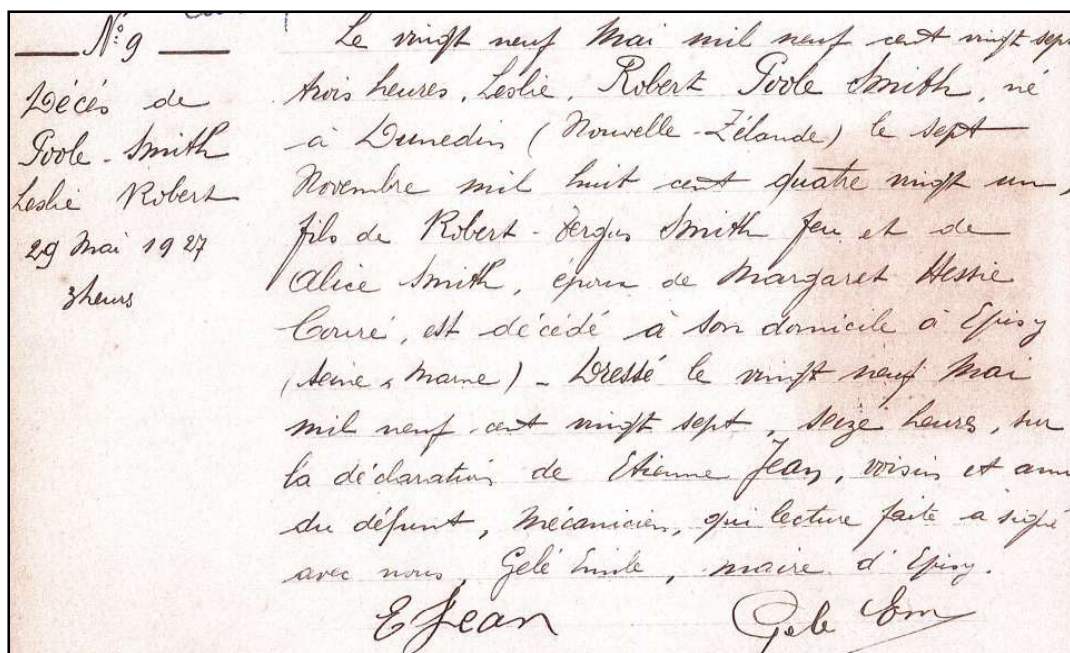 N° 9
Décès de
Poole-Smith
Leslie Robert
29 Mai 1927
3 heurs
Le vingt neuf Mai mil neuf cent vingt sept
trois heures, Leslie, Robert Poole Smith, né
à Dunedin (Nouvelle-Zélande) le sept
Novembre mil huit cent quatre vingt un,
fils de Robert-Fergus Smith feu et de
Alice Smith, époux de Margaret Hessie
est décédé à son domicile à Episy
(Seine & Marne) - Dressé le vingt neuf Mai
mil neuf cent vingt sept, seize heures, sur
la déclaration de Etienne Jean, voisin et ami
du défunt, Mécanicien, qui lecture faite a signé
avec nous, Gelé Emile, maire d'Episy.
E Jean
Gele Em